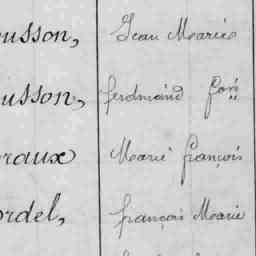 ousson, Jean Marie
ousson, ferdinand fois
raux Marie françois
rdel, françois Marie